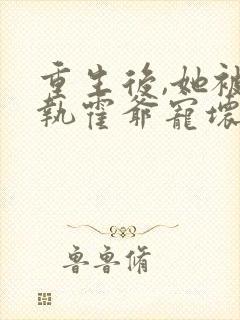 重生後,她被
執霍爺寵壞
魯魯脩